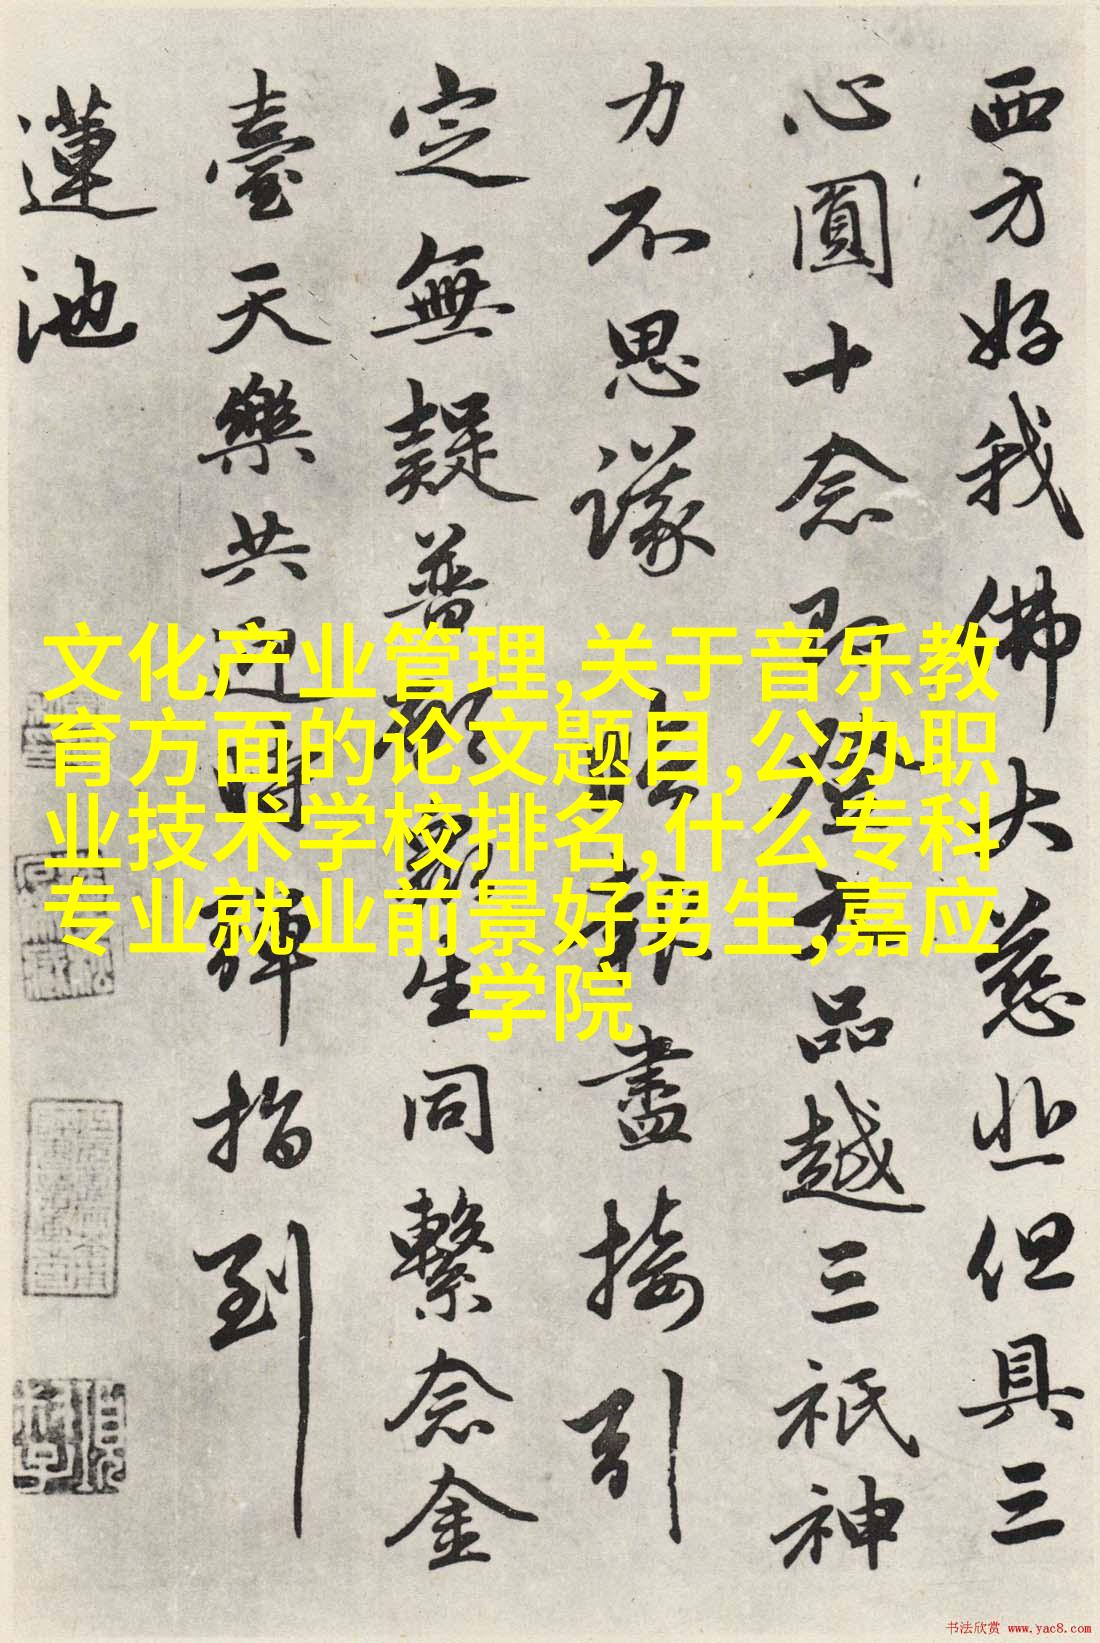 西方好我佛大慈悲但具三
心圓十念即登品越三祇神
力不思議報盡接引
定無疑普願眾生同繫念金
臺天樂共迎時彈指到
蓮池
文化产业管理,关于音乐教
育方面的论文题目,公办职
业技术学校排名,什么专科
专业就业前景好男生,嘉应
学院
书法欣赏 www.yac8.com